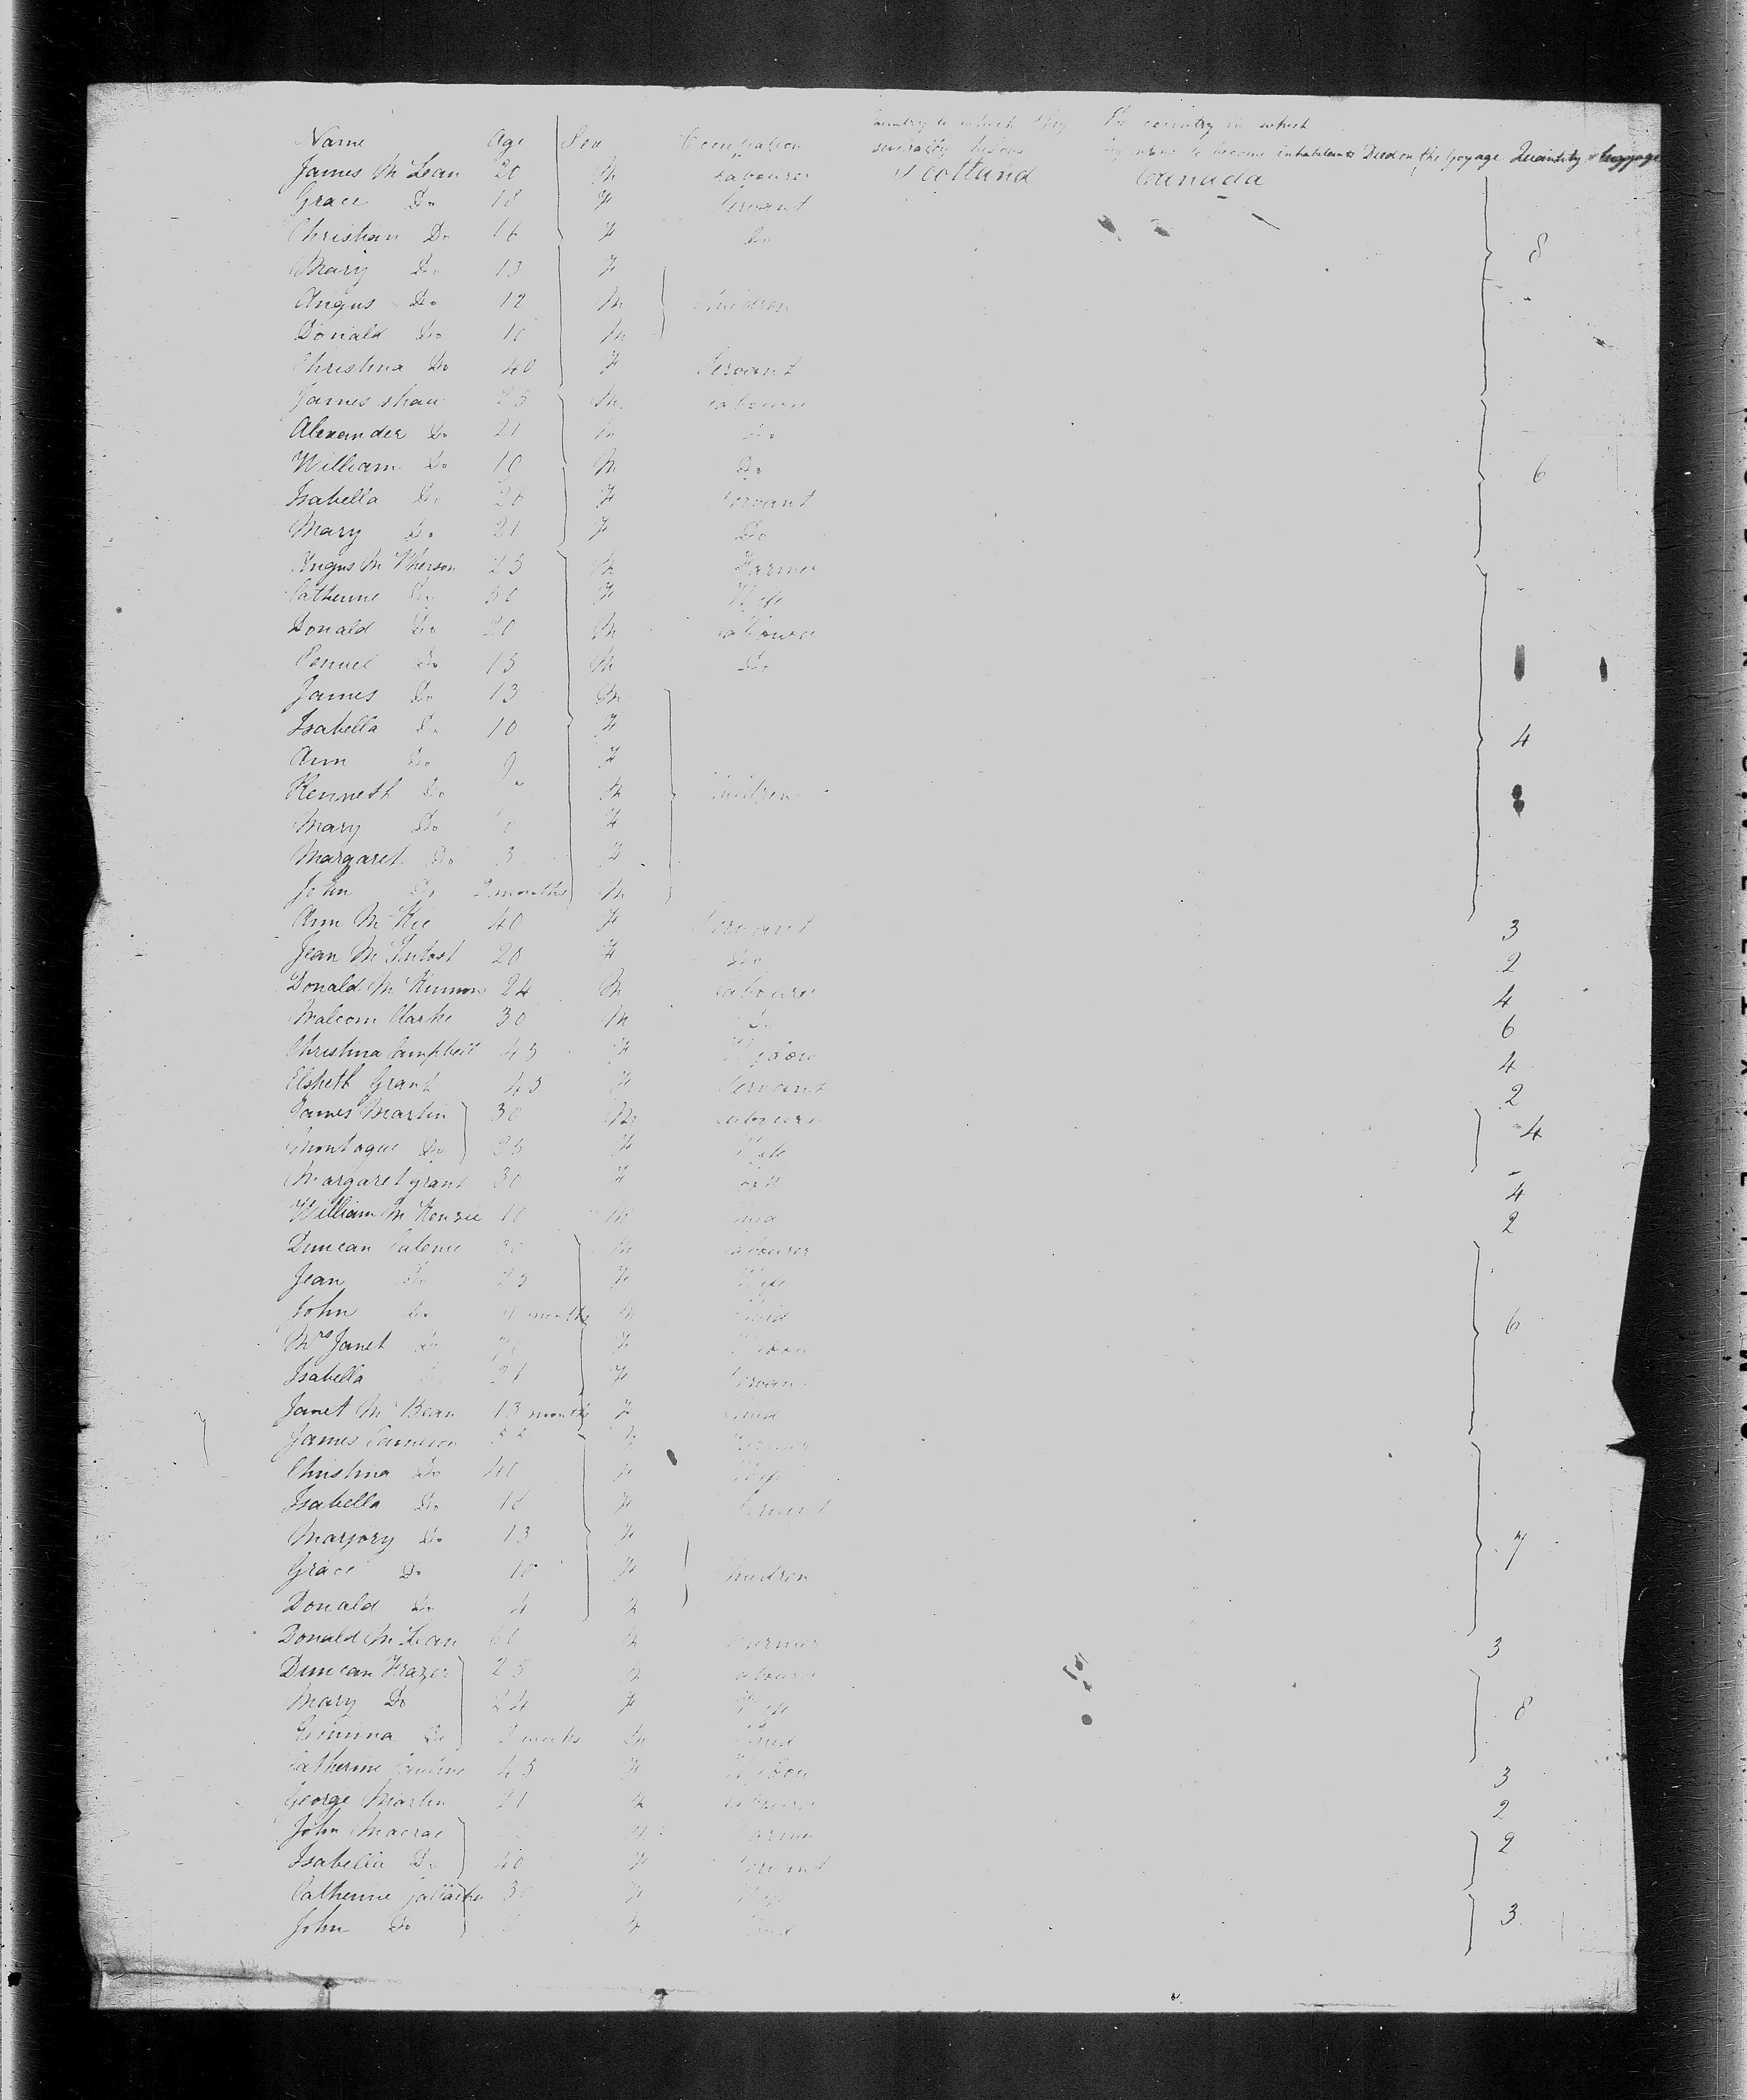 Name Age Sex Occupation Country to which they severally belong The country in which they intend to become inhabitants Died on the Voyage Quantity of luggage
James McLean 20 M Labourer Scotland Canada
Grace Do 18 F Servant
Christian Do 16 F Do 8
Mary Do 13 F
Angus Do 12 M Children
Donald Do 10 M
Christina Do 40 F Servant
James Shaw 25 M Labourer
Alexander Do 21 M Do
William Do 10 M Do 6
Isabella Do 26 F Servant
Mary Do 21 F Do
Angus McPherson 25 M Farmer
Catherine Do 30 F Wife
Donald Do 20 M Labourer
Penuel Do 15 M Do
James Do 13 M
Isabella Do 10 F 4
Ann Do 9 F
Kenneth Do M Children
Mary Do F
Margaret Do 3 F
John Do 2 months M
Ann McKie 40 F Servant 3
Jean McIntosh 20 F Do 2
Donald McKinnon 24 M Labourer 4
Malcom Clarke 30 M Do 6
Christina Campbell 45 F Widow 4
Elspeth Grant 45 F Servant 2
James Martin 30 M Labourer 4
Montague Do 25 F Wife
Margaret Grant 30 F 4
William McKenzie 10 M 2
Duncan 30 M Labourer
Jean Do 25 F Wife
John Do 9 months M Child
Mrs Janet Do F Widow 6
Isabella 21 F Servant
Janet McBean 13 months F Child
James Cameron 55 M Farmer
Christina Do 40 F Wife
Isabella Do 18 F Servant
Marjory Do 13 F 7
Grace Do 10 F Children
Donald Do 4 M
Donald McLean 60 M Farmer 3
Duncan Frazer 25 M Labourer
Mary Do 24 F Wife 8
Do 2 weeks M Child
Catherine 45 F Widow 3
George Martin 21 M Labourer 2
John Macrae M Farmer 2
Isabella Do 40 F Servant
Catherine 30 F Wife
John Do M Child 3